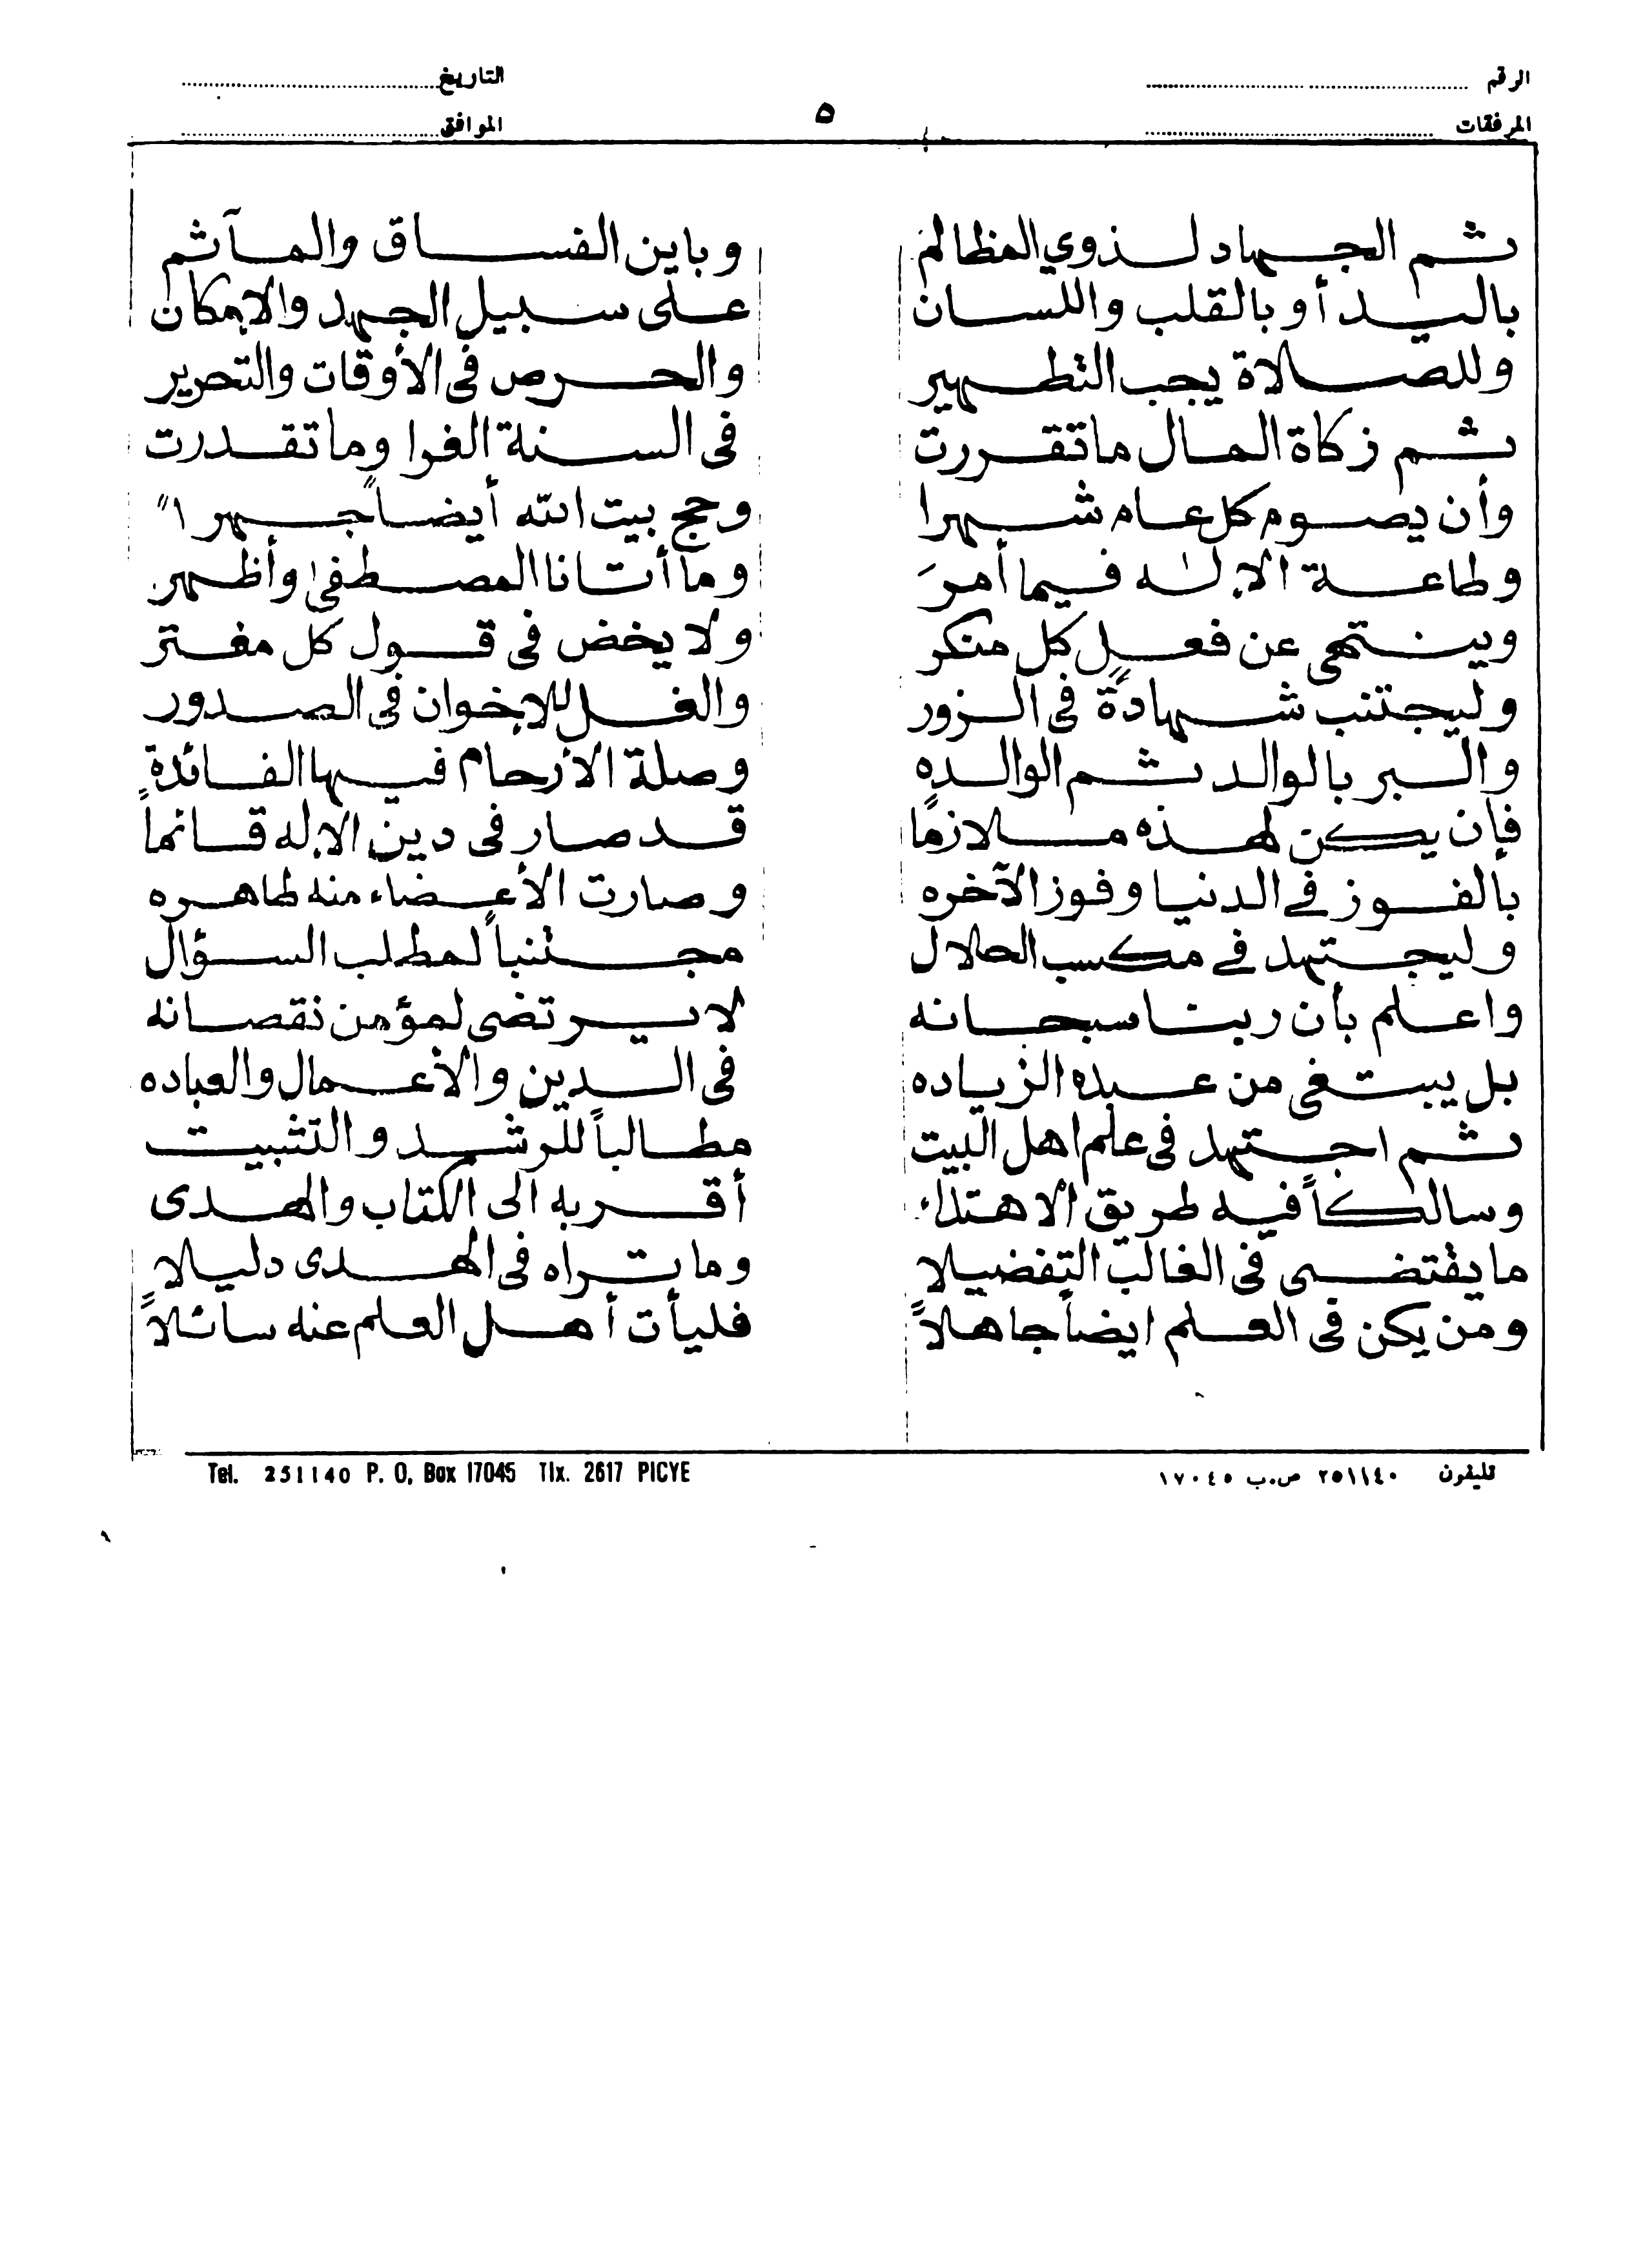 الرقم التاريخ
٥
المرفقات الموافق
ثم الجهاد لذوي المظالم وباين الفساق والمآثم
باليد أو بالقلب واللسان على سبيل الجهد والإمكان
وللصلاة يجب التطهير والحرص فى الأوقات والتحرير
ثم زكاة المال ما تقررت فى السنة الغرا وما تقدرت
وأن يصوم كل عام شهرا وحج بيت الله أيضاً جهرا"
وطاعة الإله فيما أمرَ وما أتانا المصطفى وأظهر
وينتهى عن فعل كل منكر ولا يخض فى قول كل مفتر
وليجتنب شهادةً فى الزور والغل للإخوان فى الصدور
والبر بالوالد ثم الوالده وصلة الأرحام فيها الفائدة
فإن يكن لهذه ملازماً قد صار فى دين الإله قائماً
بالفوز في الدنيا وفوز الآخره وصارت الأعضاء منه طاهره
وليجتهد في مكسب الحلال مجتنباً لمطلب السؤال
واعلم بأن ربنا سبحانه لا يرتضى لمؤمن نقصانه
بل يبتغى من عبده الزياده فى الدين والأعمال والعباده
ثم اجتهد فى علم اهل البيت مطالباً للرشد والتثبيت
وسالكاً فيه طريق الاهتداء أقربه الى الكتاب والهدى
ما يقتضى فى الغالب التفضيلا وما تراه فى الهدى دليلا
ومن يكن فى العلم ايضاً جاهلاً فليأت أهل العلم عنه سائلاً
تليفون ٢٥١١٤٠ ص.ب ١٧٠٤٥ Tel. 251140 P. O. Box 17045 Tlx. 2617 PICYE